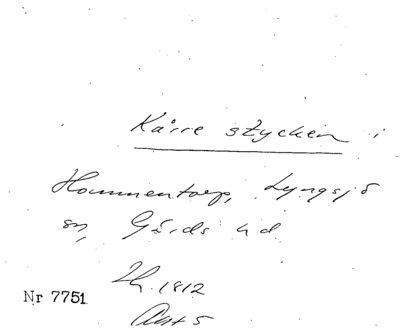 Kärrestycken i
Hommentorp, Lyngsjö
sn, Gärds hd
1812
Nr 7751